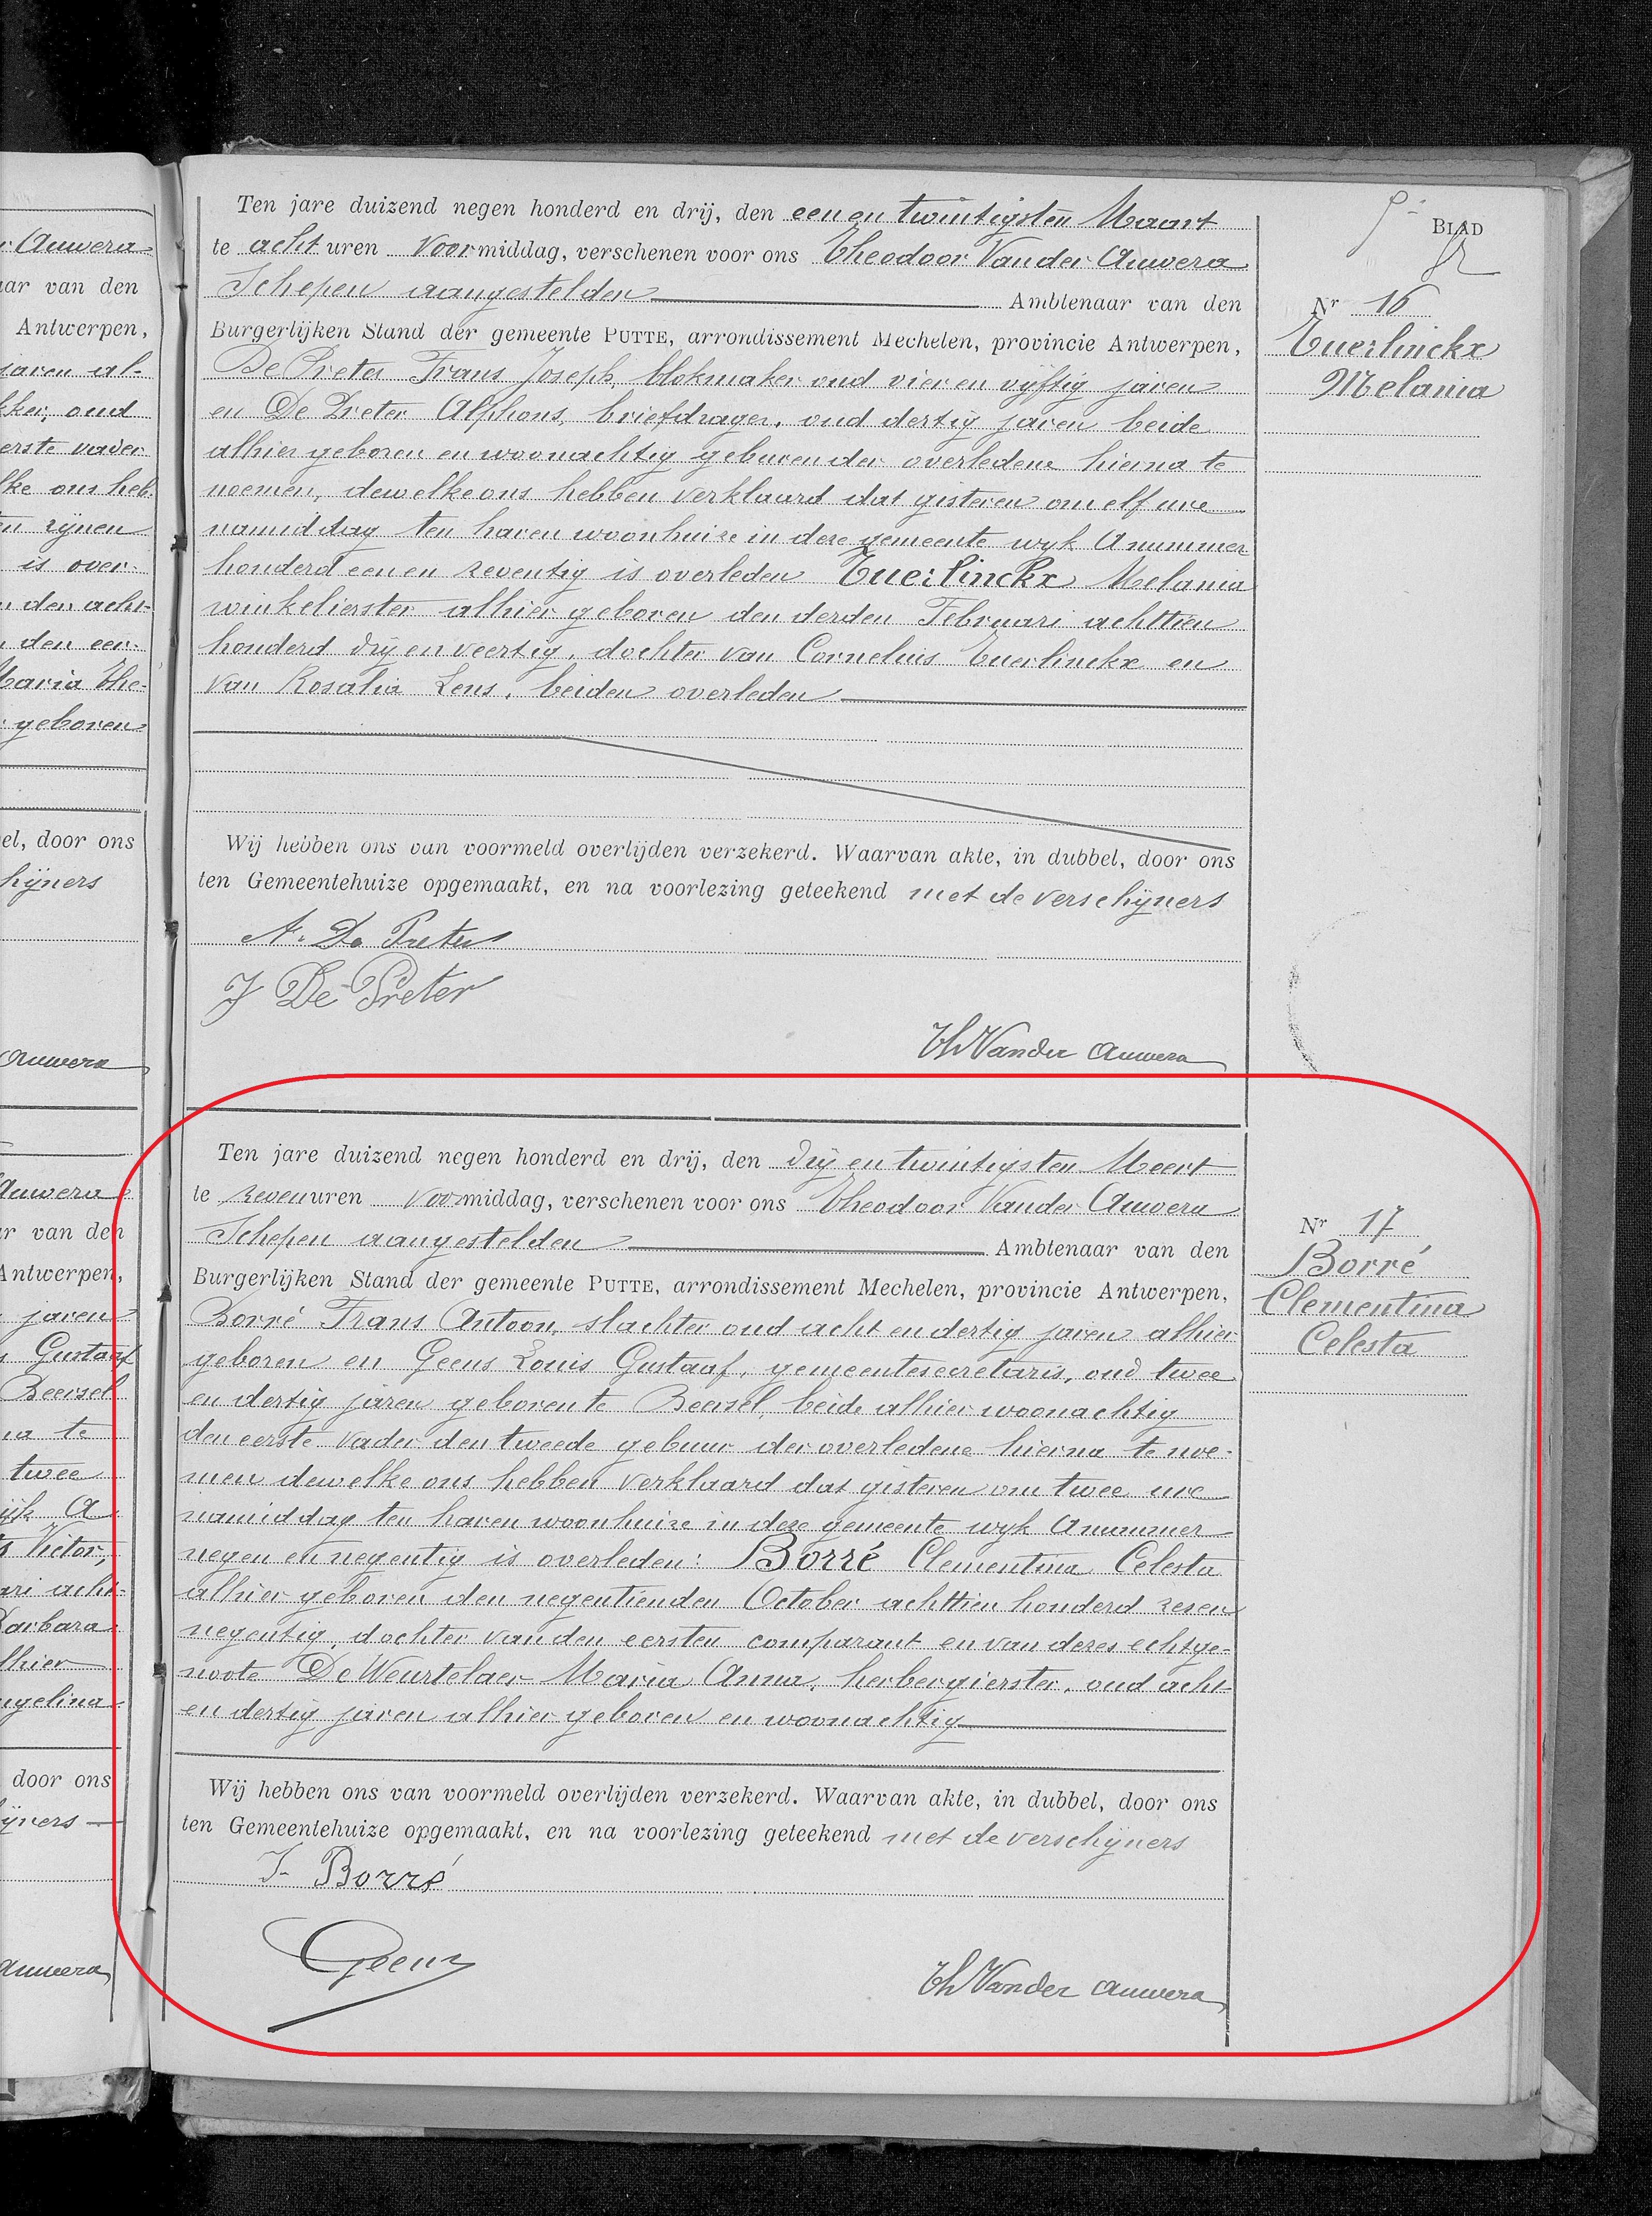 Auwera
aar van den
Antwerpen,
jaren al-
ker, oud
eerste vader
lke ons heb-
en zijnen
is over-
den acht-
den eer-
Maria The-
geboren
el, door ons
hijners
Auwera
Auwera
r van den
Antwerpen,
jaren
Gustaaf
Beersel
na te
twee
wijk A
Victor,
ari acht-
Barbara
lhier
ngelina
door ons
ijners
Auwera
BLAD
Ten jare duizend negen honderd en drij, den een en twintigsten Maart
te acht uren Voormiddag, verschenen voor ons Theodoor Van der Auwera
Schepen aangestelden Ambtenaar van den
Burgerlijken Stand der gemeente PUTTE, arrondissement Mechelen, provincie Antwerpen,
De Preter Frans Joseph, blokmaker oud vier en vijftig jaren
en De Preter Alphons, briefdrager, oud dertig jaren beide
alhier geboren en woonachtig geburen der overledene hierna te
noemen, dewelke ons hebben verklaard dat gisteren om elf ure
namiddag ten haren woonhuize in deze gemeente wijk A nummer
honderd een en zeventig is overleden Tuerlinckx Melania
winkelierster alhier geboren den derden Februari achttien
honderd drij en veertig, dochter van Cornelius Tuerlinckx en
van Rosalia Lens, beiden overleden
Wij hebben ons van voormeld overlijden verzekerd. Waarvan akte, in dubbel, door ons
ten Gemeentehuize opgemaakt, en na voorlezing geteekend met de verschijners
A. De Preter
J De Preter
Th Vander Auwera
Nr 16
Tuerlinckx
Melania
Ten jare duizend negen honderd en drij, den drij en twintigsten Meert
te zeven uren voormiddag, verschenen voor ons Theodoor Van der Auwera
Schepen aangestelden Ambtenaar van den
Burgerlijken Stand der gemeente PUTTE, arrondissement Mechelen, provincie Antwerpen,
Borré Frans Antoon, slachter oud acht en dertig jaren alhier
geboren en Geens Louis Gustaaf, gemeentesecretaris, oud twee
en dertig jaren geboren te Beersel, beide alhier woonachtig
den eerste vader den tweede gebuur der overledene hierna te noe-
men dewelke ons hebben verklaard dat gisteren om twee ure
namiddag ten haren woonhuize in deze gemeente wijk A nummer
negen en negentig is overleden: Borré Clementina Celesta
alhier geboren den negentienden October achttien honderd zes en
negentig, dochter van den eersten comparant en van deszes echtge-
noote De Weurtelaer Maria Anna, herbergierster, oud acht
en dertig jaren alhier geboren en woonachtig
Wij hebben ons van voormeld overlijden verzekerd. Waarvan akte, in dubbel, door ons
ten Gemeentehuize opgemaakt, en na voorlezing geteekend met de verschijners
F. Borré
Geens
Th Vander Auwera
Nr 17
Borré
Clementina
Celesta